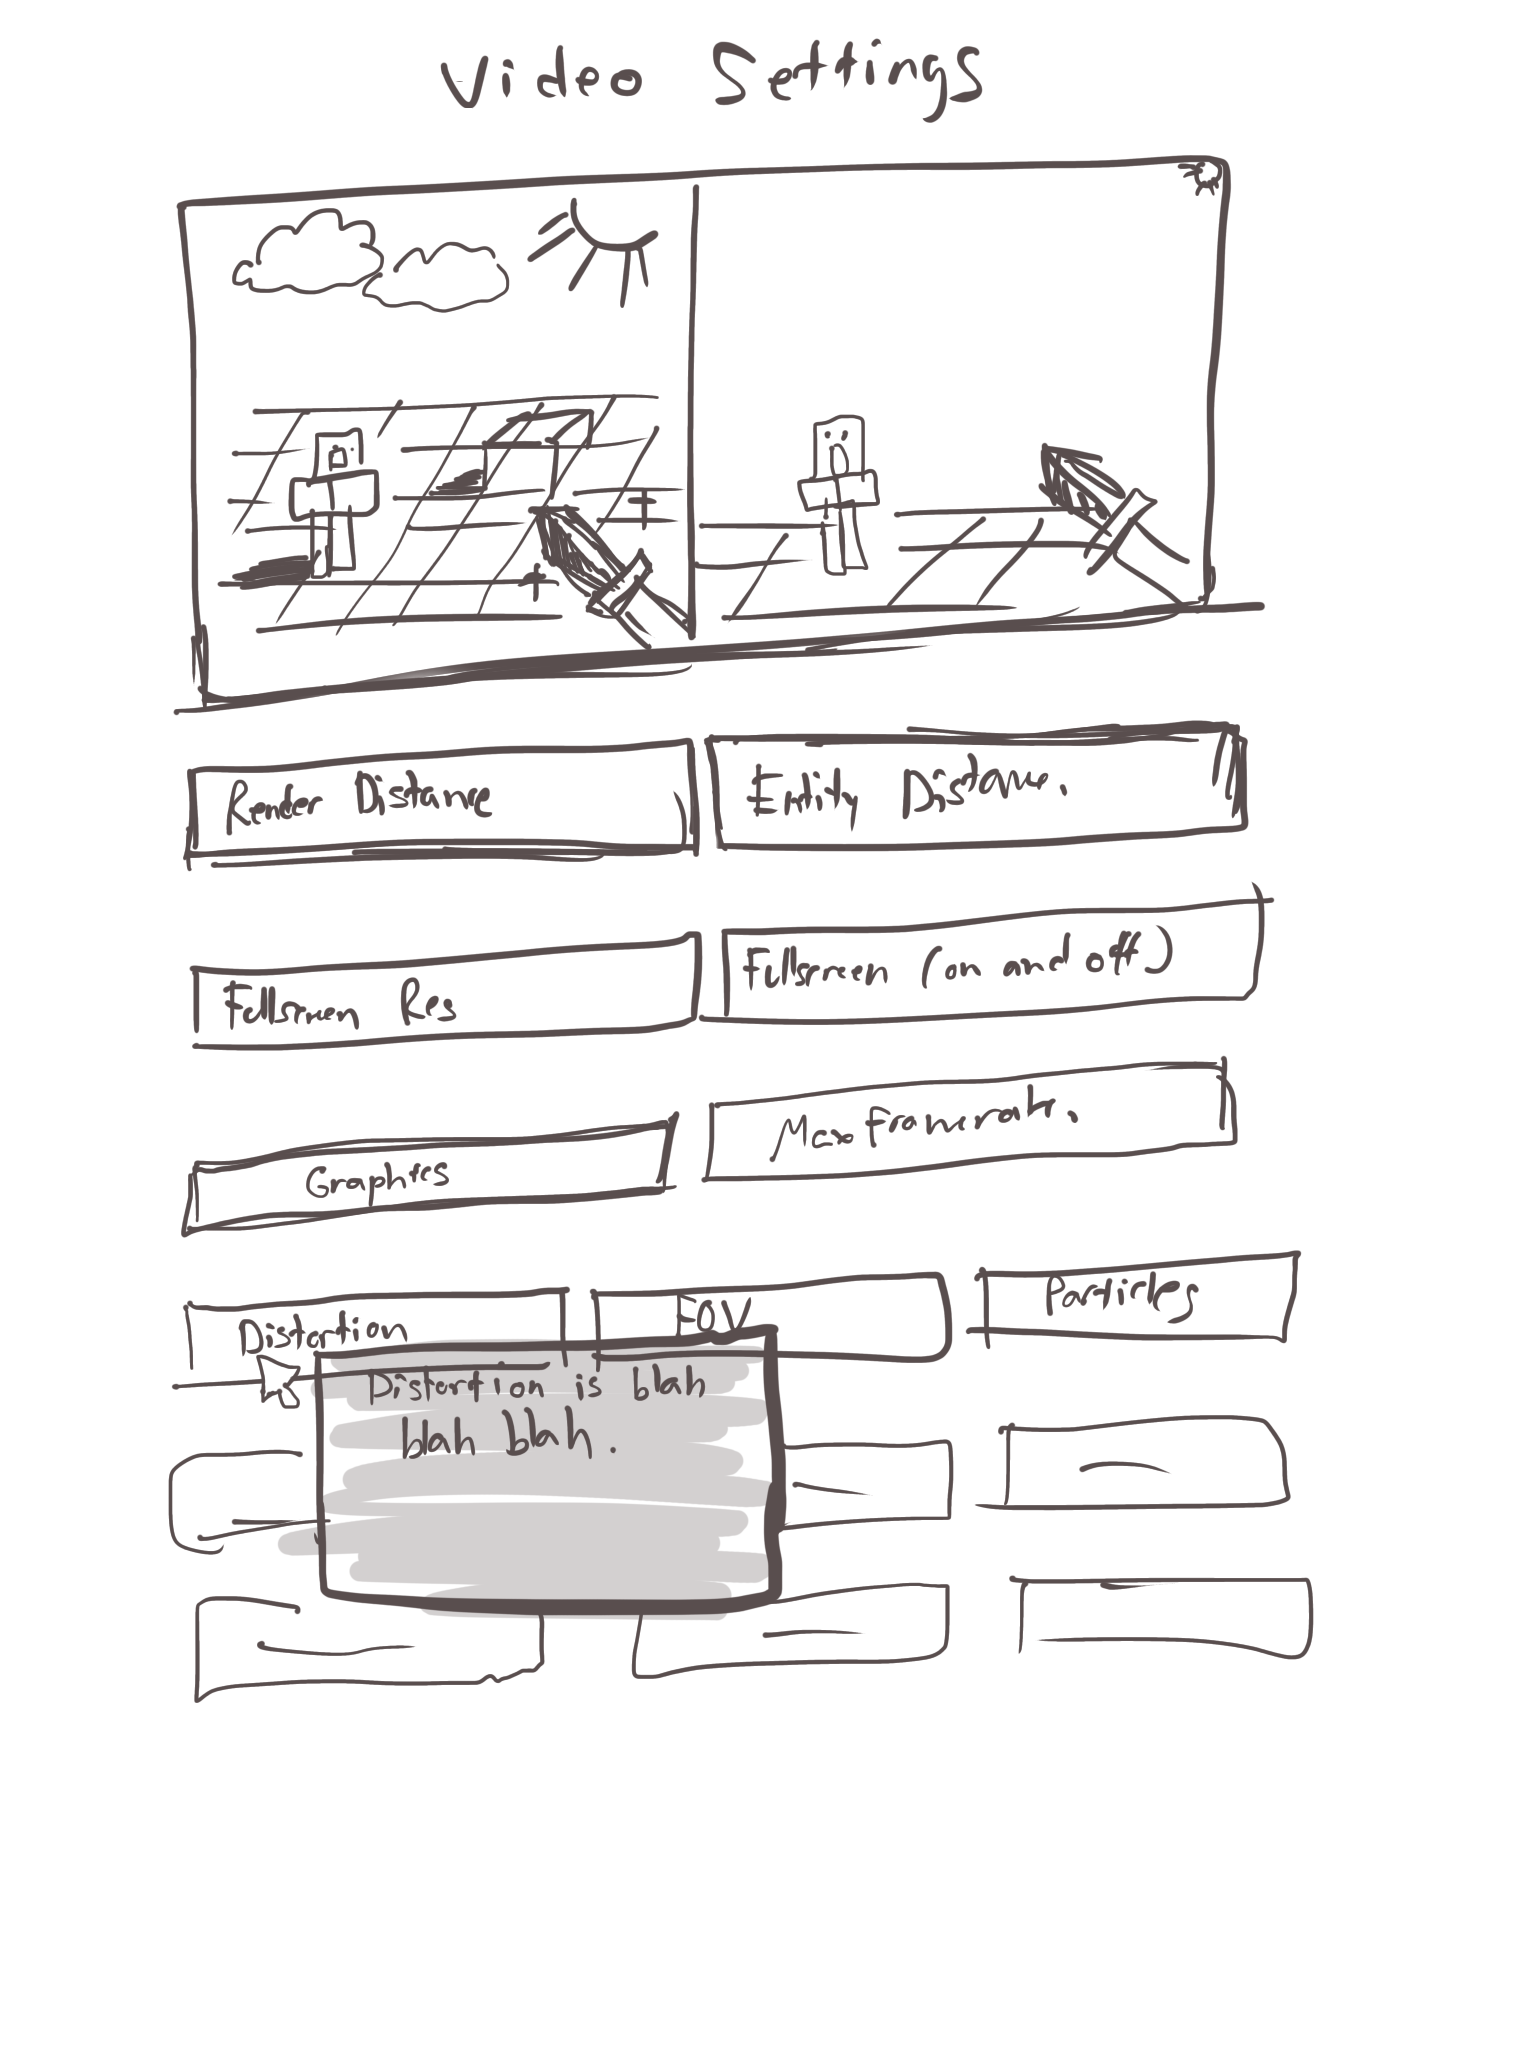 Video Settings
Render Distance
Entity Distance.
Fullscreen Res
Fullscreen (on and off)
Graphics
Max Framerate.
Distortion
FOV
Particles
Distortion is blah
blah blah.